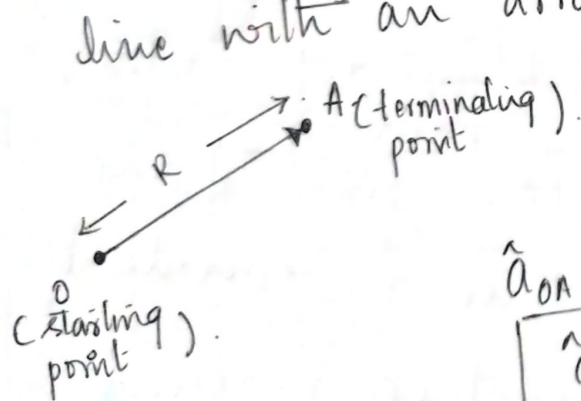 line with an
A (terminating)
point
R
O
(starting
point).
â OA